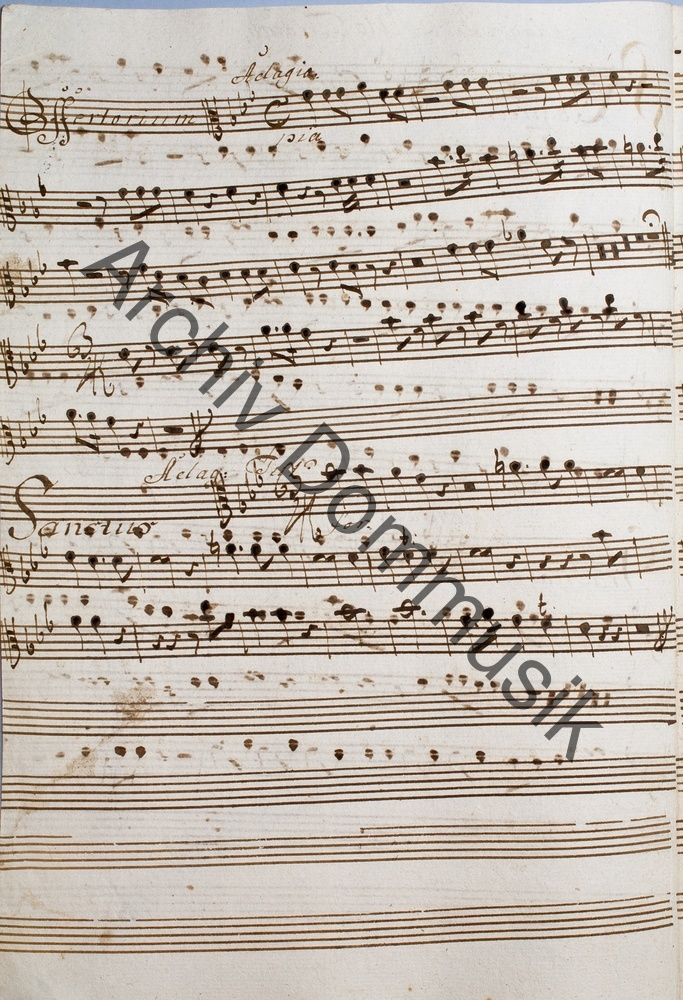 Adagio
Offertorium
pia
Adag:
Sanctus
Archiv Dommusik